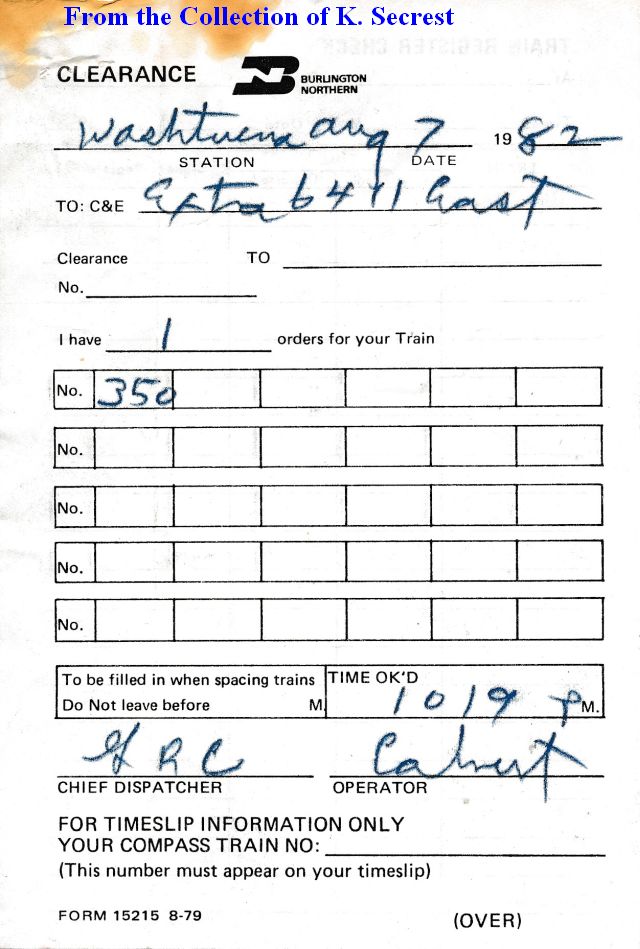 From the Collection of K. Secrest
CLEARANCE BURLINGTON NORTHERN
Washtucna Aug 7 1982
STATION DATE
TO: C&E Extra 6411 East
Clearance TO
No.
I have 1 orders for your Train
No. 350
No.
No.
No.
No.
To be filled in when spacing trains TIME OK'D
Do Not leave before M. 1019 P M.
GRC Calvert
CHIEF DISPATCHER OPERATOR
FOR TIMESLIP INFORMATION ONLY
YOUR COMPASS TRAIN NO:
(This number must appear on your timeslip)
FORM 15215 8-79
(OVER)